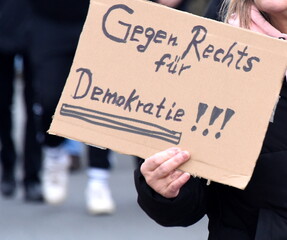 Gegen Rechts
für
Demokratie!!!